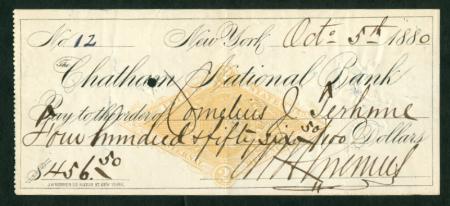 No. 12 New York, Oct. 5th 1880
The Chatham National Bank
Pay to the order of Cornelius J. Terhune
Four hundred & fifty six 50/100 Dollars
$456.50